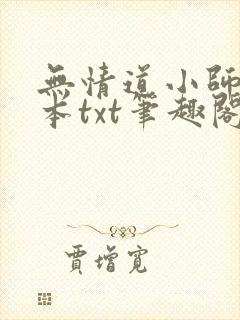 無情道小師
本txt筆趣閣
賈增寬